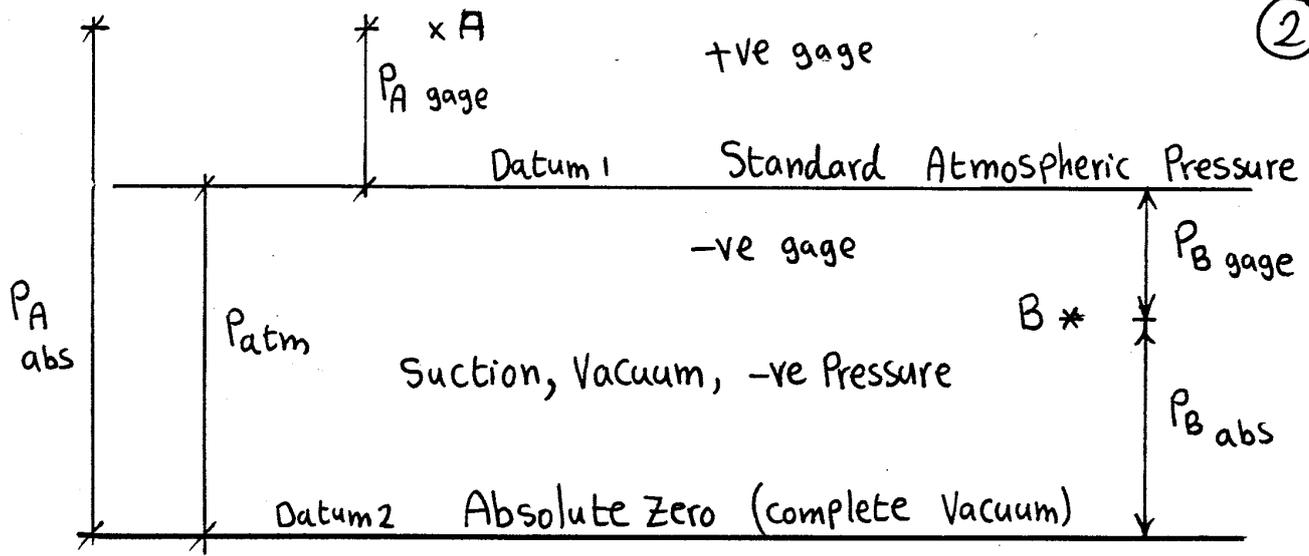 2
x A
+ve gage
PA gage
Datum 1 Standard Atmospheric Pressure
-ve gage
PB gage
PA abs
Patm
B *
Suction, Vacuum, -ve Pressure
PB abs
Datum2 Absolute Zero (complete Vacuum)